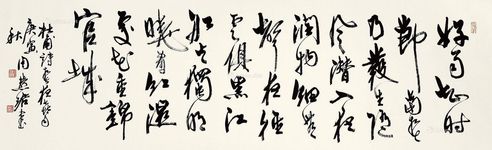 好雨知时
节当春
乃发生随
风潜入夜
润物细无
声野径
云俱黑江
船火独明
晓看红湿
处花重锦
官城
杜甫诗春夜喜雨
庚寅
秋周书